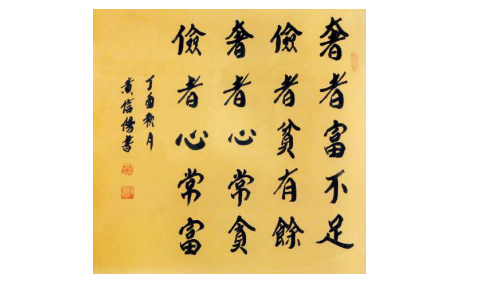 奢者富不足
儉者貧有餘
奢者心常貪
儉者心常富
丁酉秋月
信書